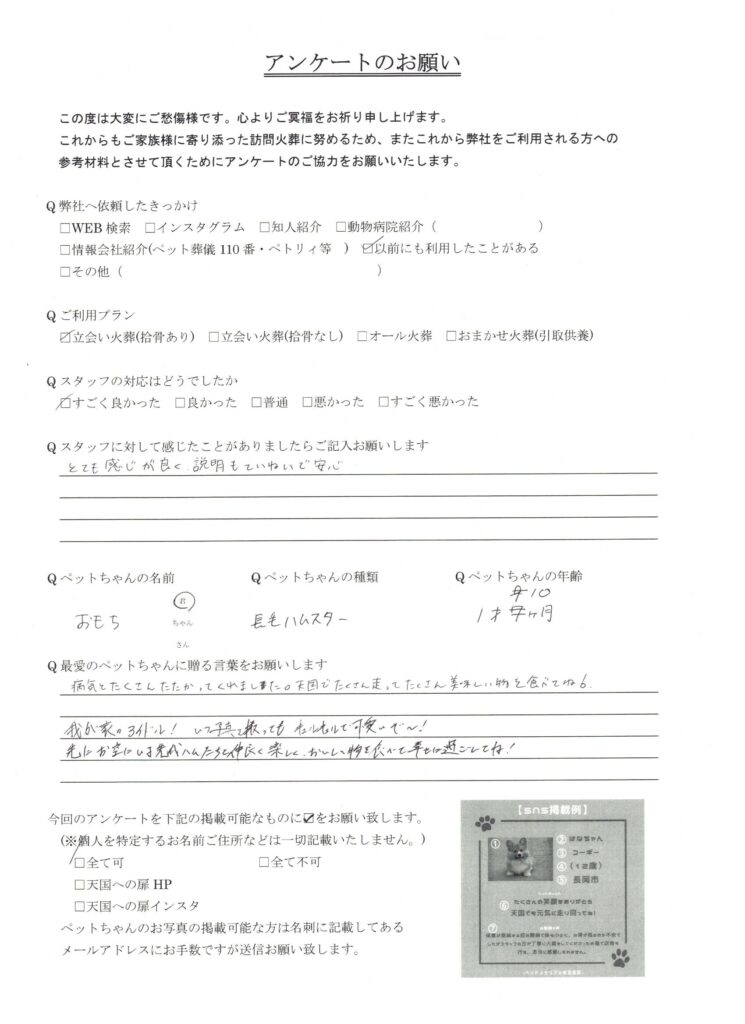 アンケートのお願い
この度は大変にご愁傷様です。心よりご冥福をお祈り申し上げます。
これからもご家族様に寄り添った訪問火葬に努めるため、またこれから弊社をご利用される方への
参考材料とさせて頂くためにアンケートのご協力をお願いいたします。
Q 弊社へ依頼したきっかけ
□WEB 検索 □インスタグラム □知人紹介 □動物病院紹介（ ）
□情報会社紹介(ペット葬儀 110 番・ペトリィ等 ) ☑以前にも利用したことがある
□その他（ ）
Q ご利用プラン
☑立会い火葬(拾骨あり) □立会い火葬(拾骨なし) □オール火葬 □おまかせ火葬(引取供養)
Q スタッフの対応はどうでしたか
☑すごく良かった □良かった □普通 □悪かった □すごく悪かった
Q スタッフに対して感じたことがありましたらご記入お願いします
とても感じが良く、説明もていねいで安心
Q ペットちゃんの名前 Q ペットちゃんの種類 Q ペットちゃんの年齢
君 10
おもち ちゃん 長毛ハムスター 1才 ヶ月
さん
Q 最愛のペットちゃんに贈る言葉をお願いします
病気とたくさんたたかってくれました。天国でたくさん走ってたくさん美味しい物を食べてね
我が家のアイドル! いつ写真撮っても で可愛いぞ〜!
先にお空にいる ハムたちと仲良く楽しく、おいしい物を食べて幸せに過ごしてね!
今回のアンケートを下記の掲載可能なものに☑をお願い致します。
(※個人を特定するお名前ご住所などは一切記載いたしません。)
☑全て可 □全て不可
□天国への扉 HP
□天国への扉インスタ
ペットちゃんのお写真の掲載可能な方は名刺に記載してある
メールアドレスにお手数ですが送信お願い致します。
【sns掲載例】
① ② はなちゃん
③ コーギー
④ (12歳)
⑤ 長岡市
⑥ たくさんの笑顔をありがとう
天国でも元気に走り回ってね!
⑦